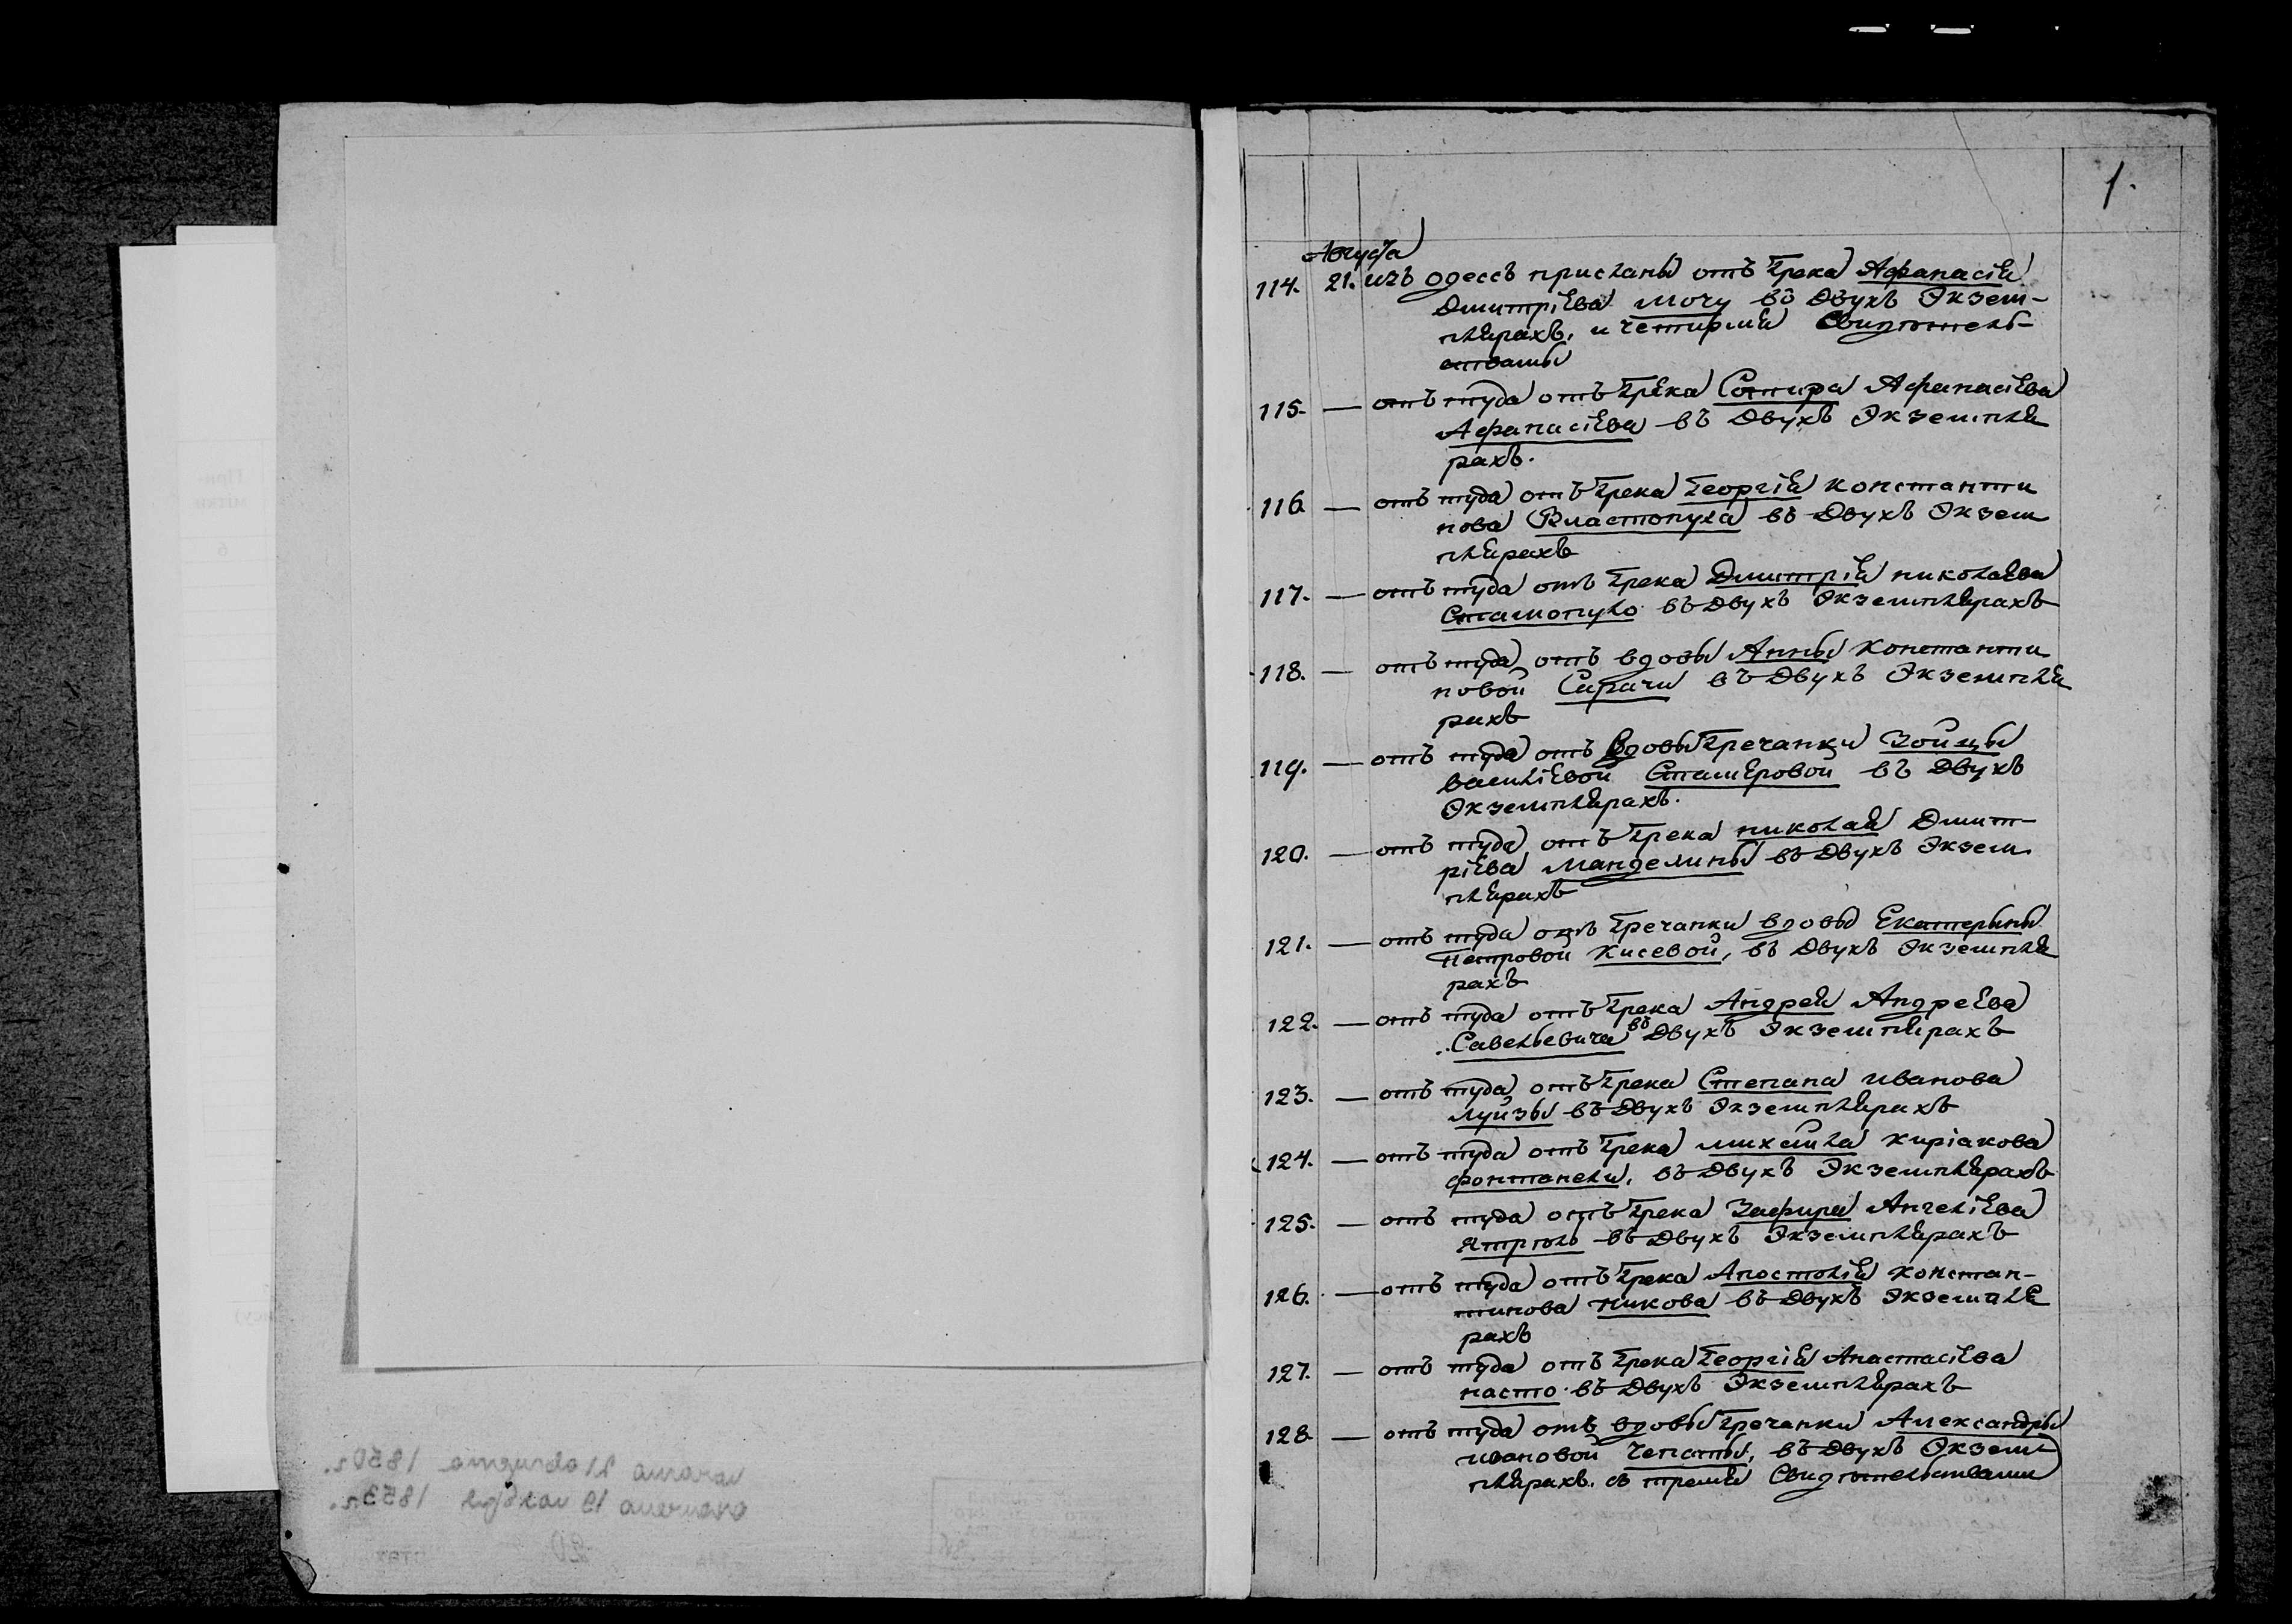 1.
Августа
114. 21. изъ одессъ присланы отъ Грека Афанасія
Дмитріева Мочу въ Двухъ Экзем-
плярахъ, и четирмя Свидѣтель-
ствамы
115. — отъ туда отъ Грека Сотира Афанасіева
Афанасіева въ Двухъ Экземпля
рахъ.
116. — отъ туда отъ Грека Георгія Константи
нова Властопула въ Двухъ Экзем
плярахъ
117. — отъ туда отъ Грека Дмитрія николаева
Стамопуло въ Двухъ Экземплярахъ
118. — отъ туда отъ вдовы Анны Константи
новой Сарачи въ Двухъ Экземпля
рахъ
119. — отъ туда отъ Вдовы Гречанки Зойцы
василіевой Стамеровой въ Двухъ
Экземплярахъ.
120. — отъ туда отъ Грека николая Дмит-
ріева Манделины въ Двухъ Экзем
плярахъ
121. — отъ туда отъ Гречанки вдовы Екатерыны
Петровой Кисевой, въ Двухъ Экземпля
рахъ
122. — отъ туда отъ Грека Андрея Андреева
Савельевича въ Двухъ Экземплярахъ
123. — отъ туда отъ Грека Степана иванова
Луйзы въ Двухъ Экземплярахъ
124. — отъ туда отъ Грека михаила Киріакова
фонтанели, въ Двухъ Экземплярахъ
125. — отъ туда отъ Грека Зафира Ангеліева
Ятрѣло въ Двухъ Экземплярахъ
126. — отъ туда отъ Грека Апостолія констан-
тинова никова въ Двухъ Экземпля
рахъ
127. — отъ туда отъ Грека Георгія Анастасіева
насто въ Двухъ Экземплярахъ
128. — отъ туда отъ вдовы Гречанки Александры
ивановой Чепаты, въ Двухъ Экзем
плярахъ. съ тремя Свидѣтельствами